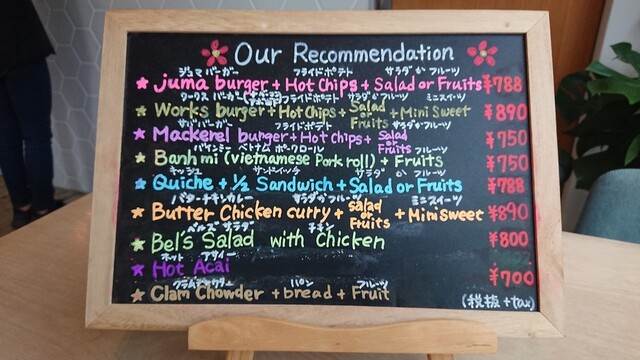 Our Recommendation
ジュマ バーガー フライドポテト サラダ か フルーツ
★ Juma burger + Hot Chips + Salad or Fruits ¥788
ワークス バーガー フライドポテト サラダ か フルーツ ミニスイーツ
★ Works burger + Hot Chips + Salad or Fruits + Mini Sweet ¥890
サバ バーガー フライドポテト サラダ か フルーツ
★ Mackerel burger + Hot Chips + Salad or Fruits ¥750
バインミー ベトナム ポークロール フルーツ
★ Banh mi (vietnamese Pork roll) + Fruits ¥750
キッシュ サンドイッチ サラダ か フルーツ
★ Quiche + ½ Sandwich + Salad or Fruits ¥788
バターチキンカレー サラダ か フルーツ ミニスイーツ
★ Butter Chicken curry + Salad or Fruits + Mini Sweet ¥890
ベルズ サラダ チキン
★ Bel's Salad with Chicken ¥800
ホット アサイー
★ Hot Acai
¥700
クラムチャウダー パン フルーツ
★ Clam Chowder + bread + Fruit
(税抜 + tax)